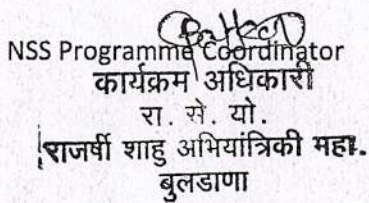 NSS Programme Coordinator
कार्यक्रम अधिकारी
रा. से. यो.
राजर्षी शाहु अभियांत्रिकी महा.
बुलडाणा